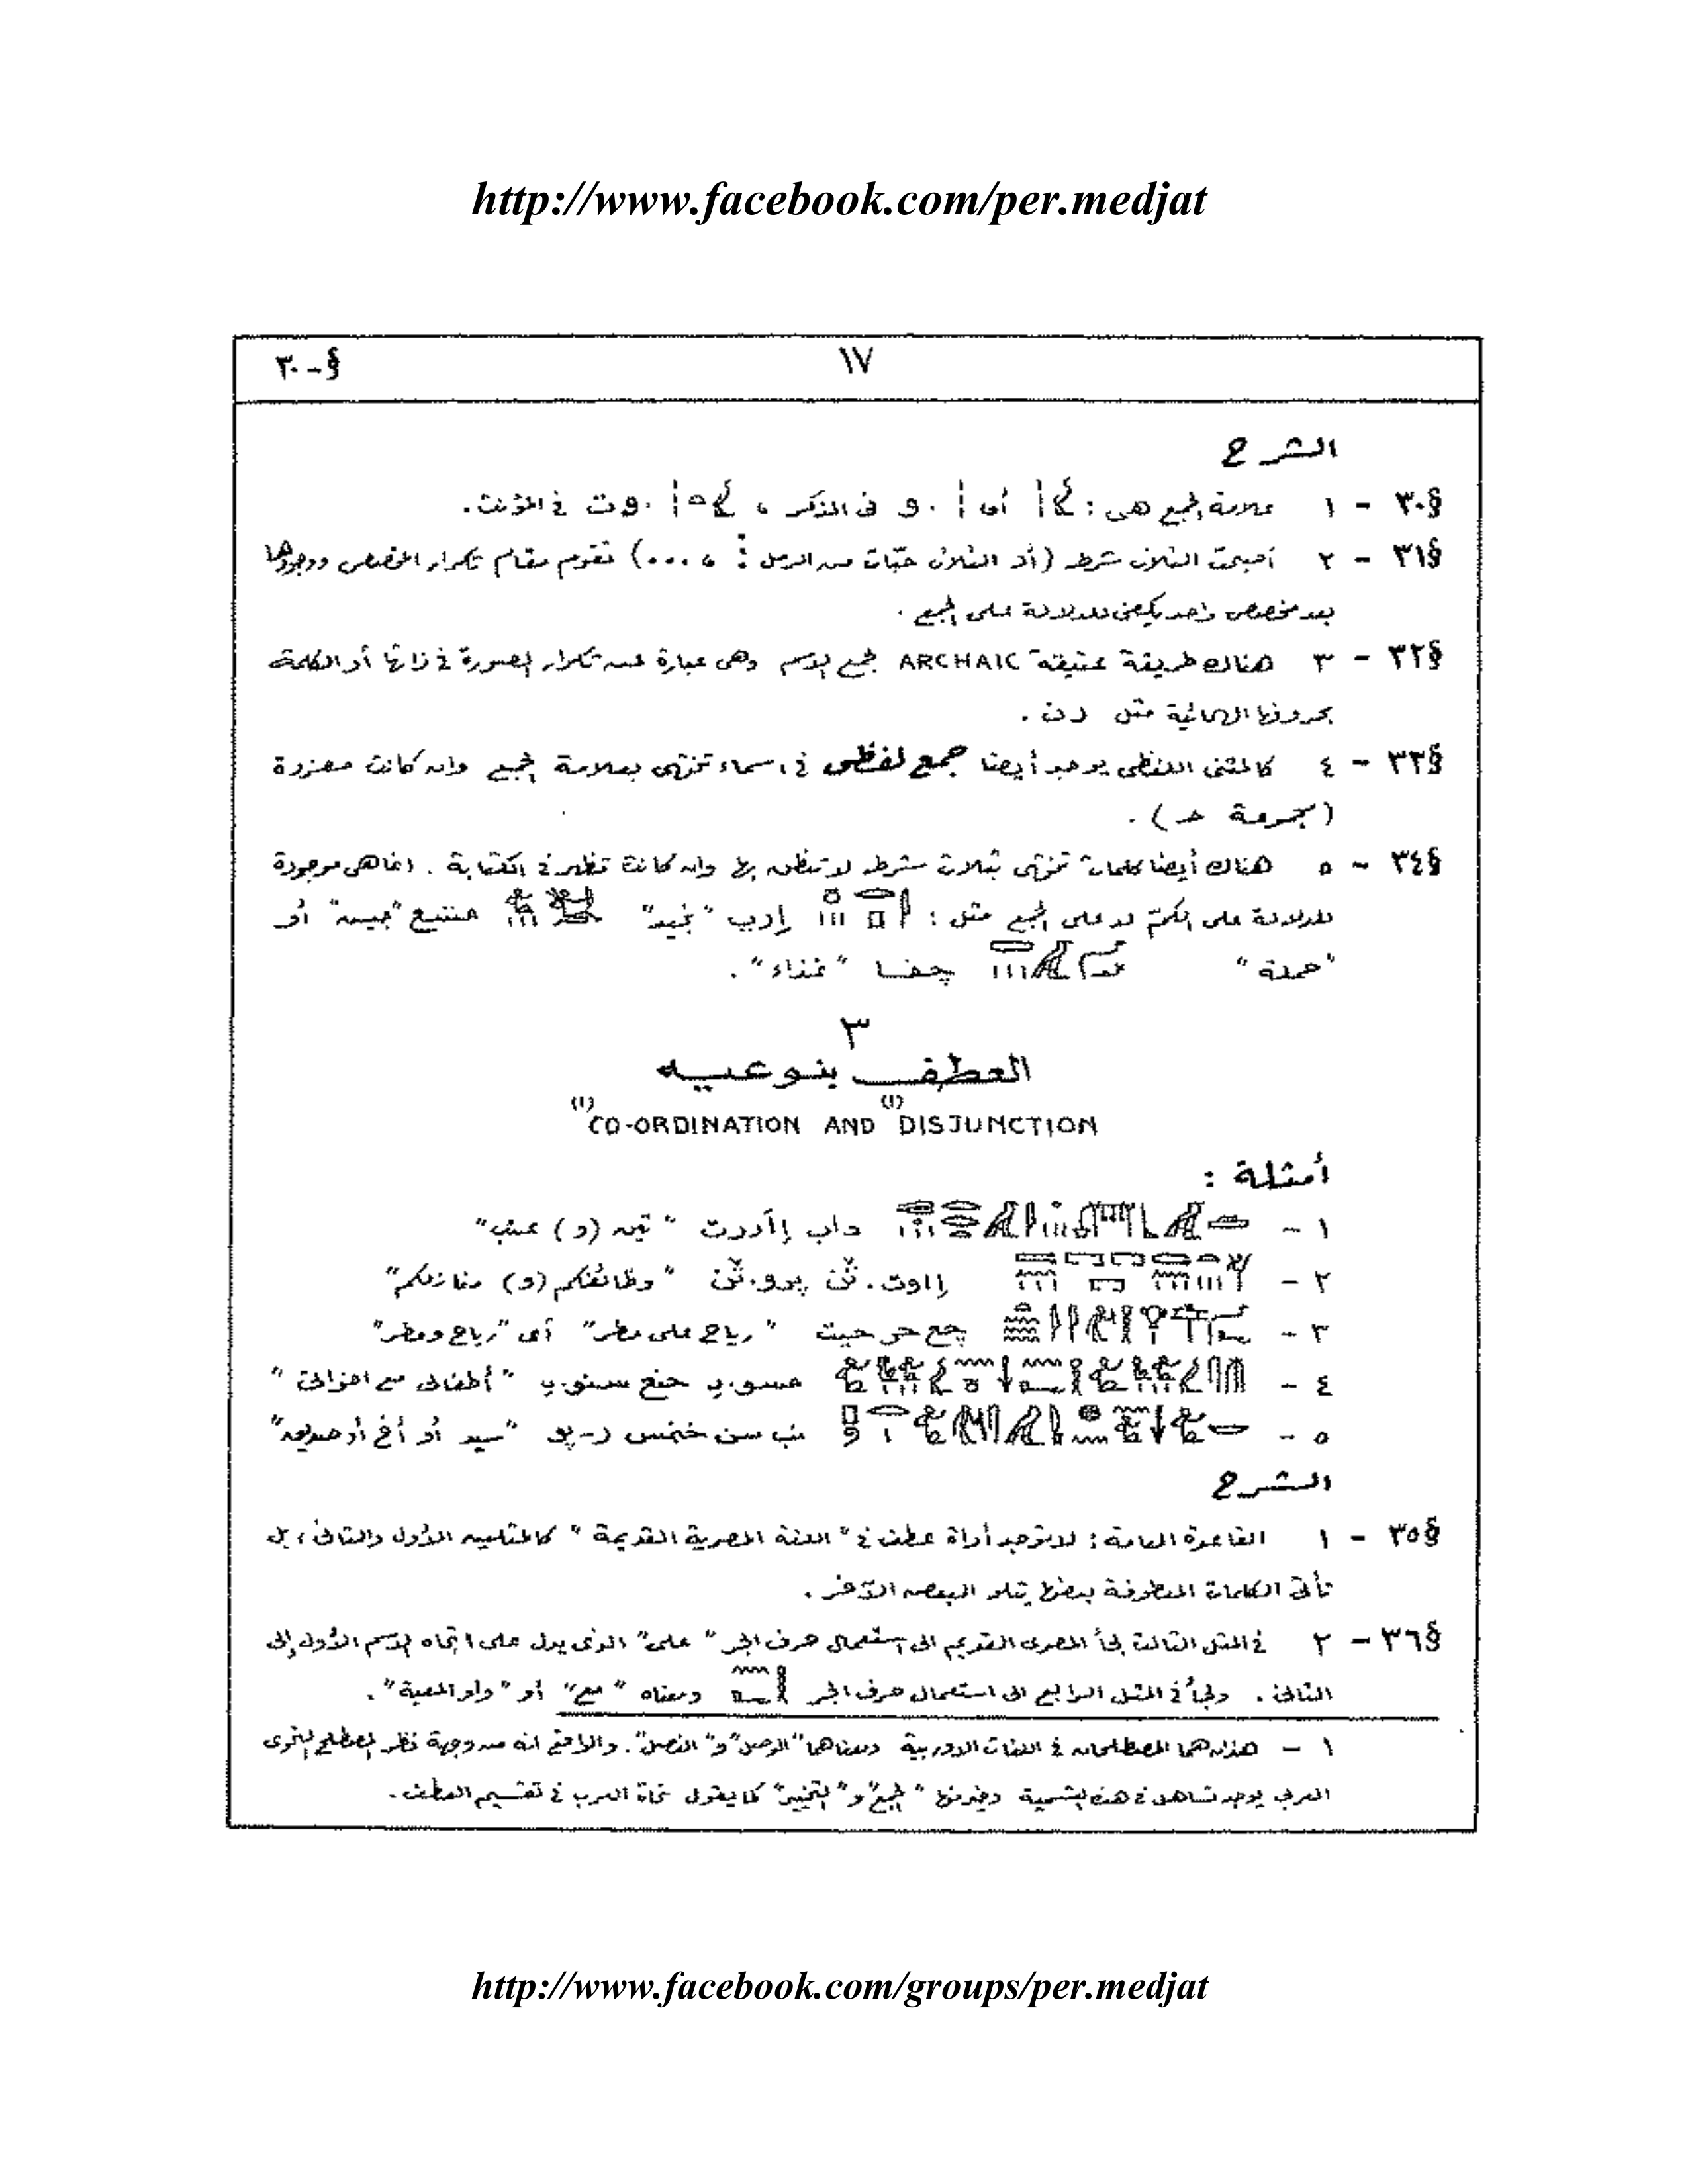 http://www.facebook.com/per.medjat
§-٣٠ ١٧
الشرح
§٣٠ - ١ علامة الجمع هى : أى .و فى المذكر ، .وت فى المؤنث.
§٣١ - ٢ أصبحت الثلاث شرط (أو الثلاث حبّات من الرمل : ، ...) تقوم مقام تكرار المخصص ووجودها
بعد مخصص واحد يكفى للدلالة على الجمع .
§٣٢ - ٣ هناك طريقة عتيقة ARCHAIC لجمع الاسم وهى عبارة عن تكرار الصورة فى ذاتها أو الكلمة
بحروفها الهجائية مثل رن .
§٣٣ - ٤ كالمثنى اللفظى يوجد أيضا جمع لفظى فى اسماء تنتهى بعلامة الجمع وان كانت مفردة
(مجموعة حـ) .
§٣٤ - ٥ هناك أيضا كلمات تنتهى بثلاث شرط لا تنطق بها وان كانت تظهر فى الكتابة . انما هى موجودة
للدلالة على الكمّ لا على الجمع مثل : إرب "نبيذ" منفيع "جيش" أو
"حملة" چفا "غذاء" .
٣
العطف بنوعيه
(١)CO-ORDINATION AND (١)DISJUNCTION
أمثلة :
١ - داب إاَررت "تين (و) عنب"
٢ - إاوت.ثن پرو.ثن "وظائفكم (و) منازلكم"
٣ - چع حر حيت "رياح على مطر" أى "رياح ومطر"
٤ - مسو.ى حنع سنو.ى "أطفالى مع اخواتى"
٥ - نب سن خنمس ر-پو "سيد أو أخ أو صديق"
الشرح
§٣٥ - ١ القاعدة العامة : لا توجد أداة عطف فى "اللغة المصرية القديمة" كالمثلين الأول والثانى ، بل
تأتى الكلمات المعطوفة بعضها يتلو البعض الآخر .
§٣٦ - ٢ فى المثل الثالث لجأ المصرى القديم الى استعمال حرف الجر "على" الذى يدل على اتجاه الاسم الأول إلى
الثانى . ولجأ فى المثل الرابع الى استعمال حرف الجر ومعناه "مع" أو "واو المعية" .
١ - هذان هما المصطلحان فى اللغات الاوربية ومعناهما "الوصل" و"الفصل" . والواقع انه من وجهة نظر المصطلح النحوى
العربى يوجد تساهل فى هذه التسمية وخير منها "الجمع" و"التخيير" كما يقول نحاة العرب فى تقسيم العطف .
http://www.facebook.com/groups/per.medjat